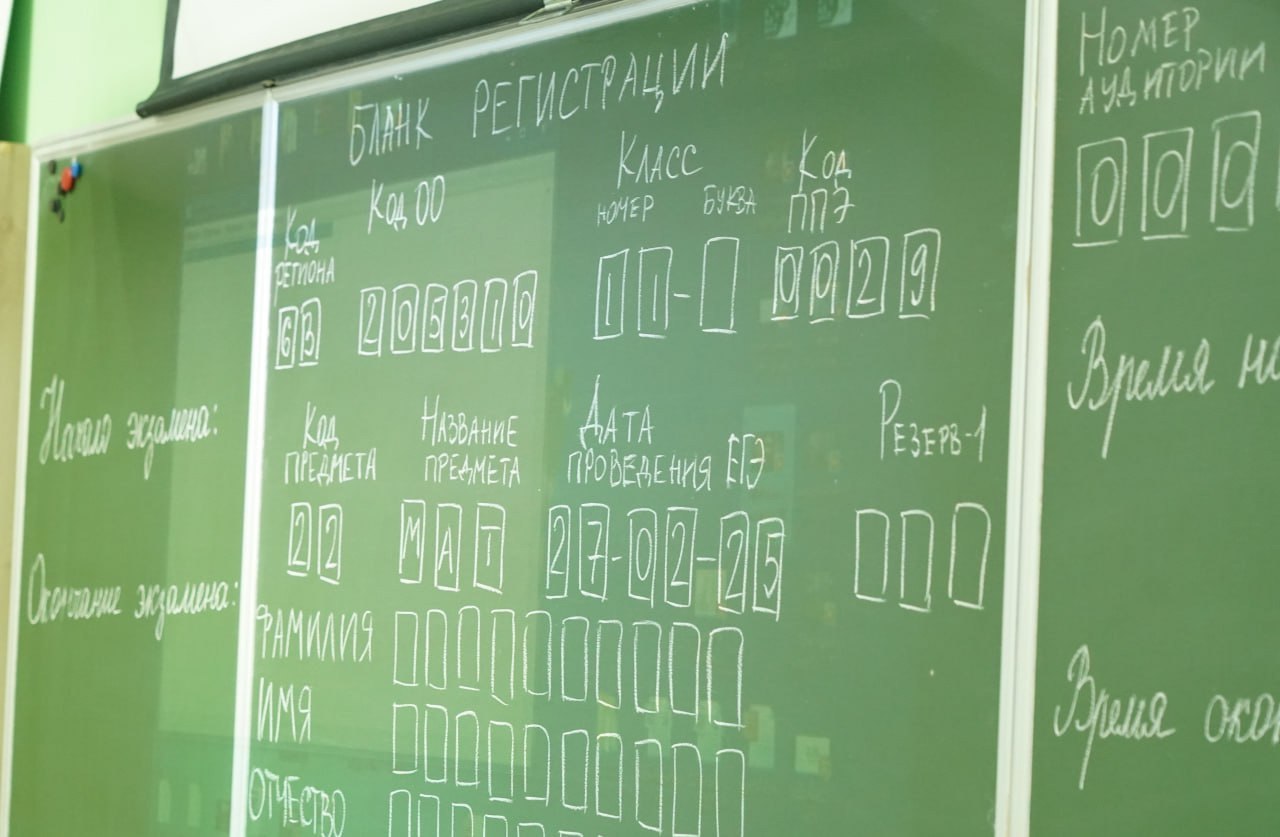 БЛАНК РЕГИСТРАЦИИ
Код РЕГИОНА
Код ОО
Класс
НОМЕР БУКВА
Код ППЭ
63
205310
11-
0029
Код ПРЕДМЕТА
НАЗВАНИЕ ПРЕДМЕТА
ДАТА ПРОВЕДЕНИЯ ЕГЭ
РЕЗЕРВ-1
22
МАТ
27-02-25
ФАМИЛИЯ
ИМЯ
ОТЧЕСТВО
Начало экзамена:
Окончание экзамена:
НОМЕР
АУДИТОРИИ
000
Время
Время